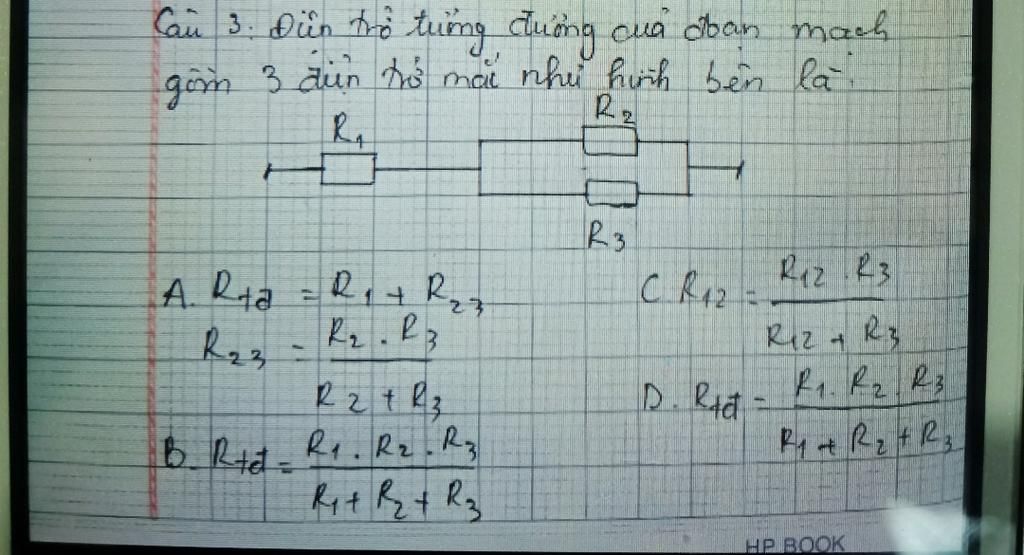 Câu 3: Điện trở tương đương của đoạn mạch
gồm 3 điện trở mắc như hình bên là:
R1
R2
R3
A. Rtđ = R1 + R23
R23 = R2 . R3
R2 + R3
B. Rtđ = R1 . R2 . R3
R1 + R2 + R3
C. R12 = R12 . R3
R12 + R3
D. Rtđ = R1 . R2 . R3
R1 + R2 + R3
HP BOOK